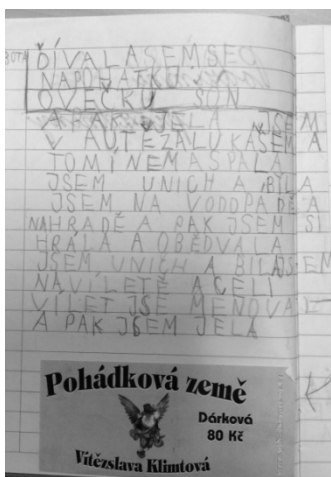 BOTA
DÍVALASEMSEC
NAPOHÁTKU
OVEČKU SON
A PAK JELA JSEM
V AUTĚZALUKÁŠEMA
TOMÍNEMASPALA
JSEM UNICH A BILA
JSEM NA VODOPÁDĚ A
NAHRADĚ A PAK JSEM SI
HRÁLA A OBĚDVALA
JSEM UNICH A BILAJSEM
NAVÍLETĚ ACELÍ
VÍLET JSE MENOVAL
A PAK JSEM JELA
Pohádková země
Dárková
80 Kč
Vítězslava Klimtová